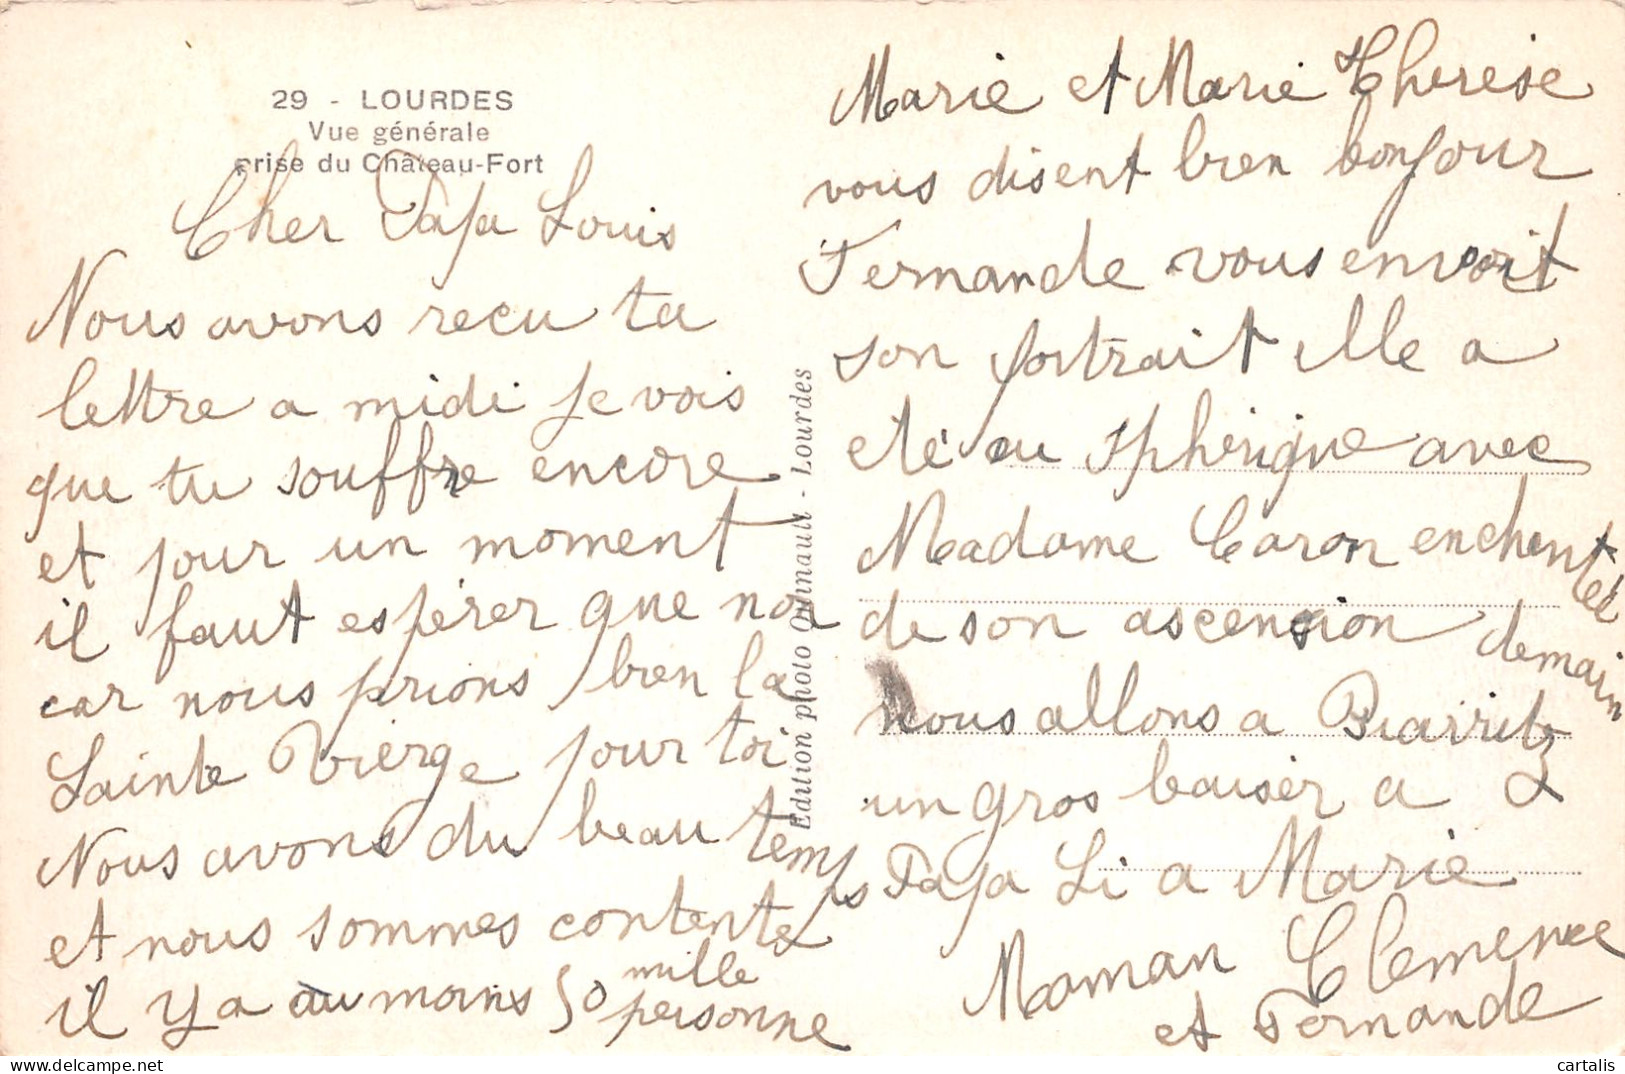 29 - LOURDES
Vue générale
prise du Château-Fort
Cher Papa Louis
Nous avons recu ta
lettre a midi je vois
que tu souffre encore
et pour un moment
il faut espérer que non
car nous prions bien la
Sainte Vierge pour toi
Nous avons du beau temps
et nous sommes contente
il y a au moins 50 mille
personne
Edition photo Quinault - Lourdes
Marie et Marie Therese
vous disent bien bonjour
Fernande vous envoit
son portrait elle a
eté au Spherique avec
Madame Caron enchentée
de son ascension demain
nous allons a Biarritz
un gros baiser a
Papa Li a Marie
Maman Clemence
et Fernande
cartalis